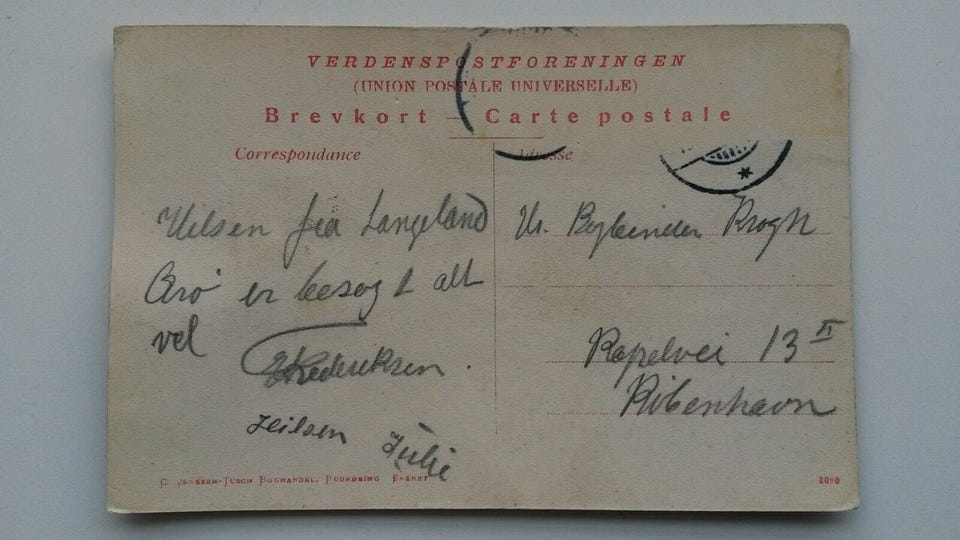 VERDENSPOSTFORENINGEN
(UNION POSTALE UNIVERSELLE)
Brevkort – Carte postale
Correspondance
Adresse
Hilsen fra Langeland
Ærö er besøgt alt
vel
Frederiksen.
Hilsen Julie
Hr. Bogbinder Krogh
Kapelvei 13 II
Kibenhavn
JENSSEN-TUSCH BOGHANDEL, RUDKØBING ENERET
8080